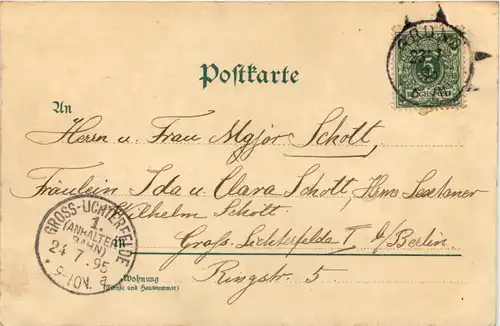 Postkarte
5
An
Herrn u. Frau Major Schott,
Fräulein Ida u. Clara Schott, Herrn Sextaner
Wilhelm Schott
in Groß Lichterfelde I b/Berlin
Ringstr. 5
Wohnung
(Straße und Hausnummer)
GROSS-LICHTERFELDE
1.
(ANHALTER
BAHN)
24 7. 95
9-10V.